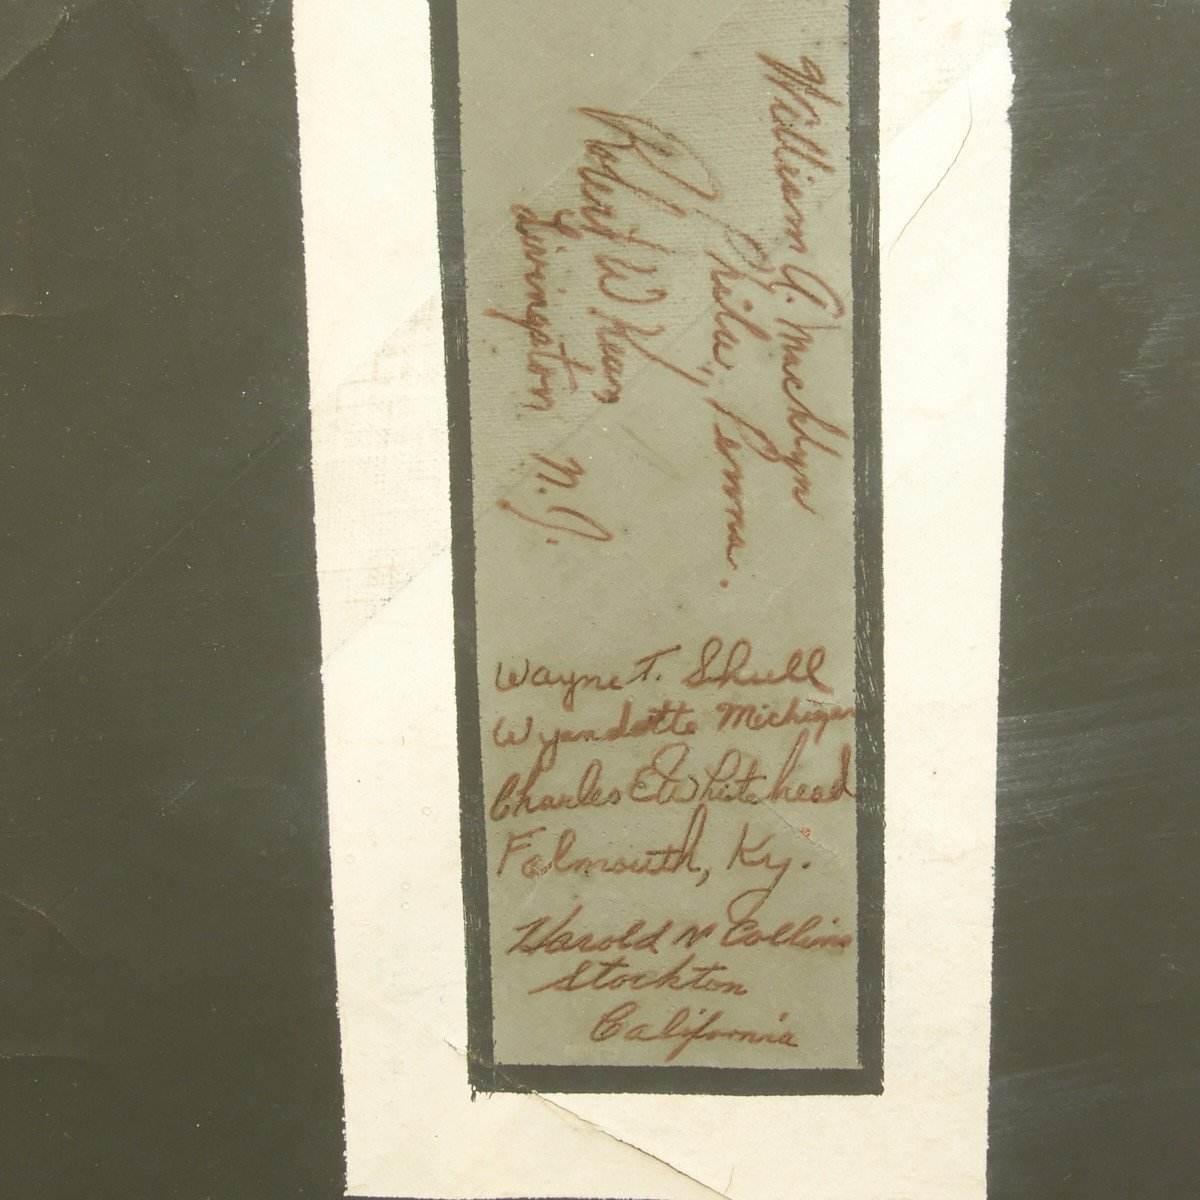 William A. Machlyn
Phila., Penna.
Robert W
Livingston N.J.
Wayne T. Shull
Wyandotte Michigan
Charles E Whitehead
Falmouth, Ky.
Harold N Collins
Stockton
California